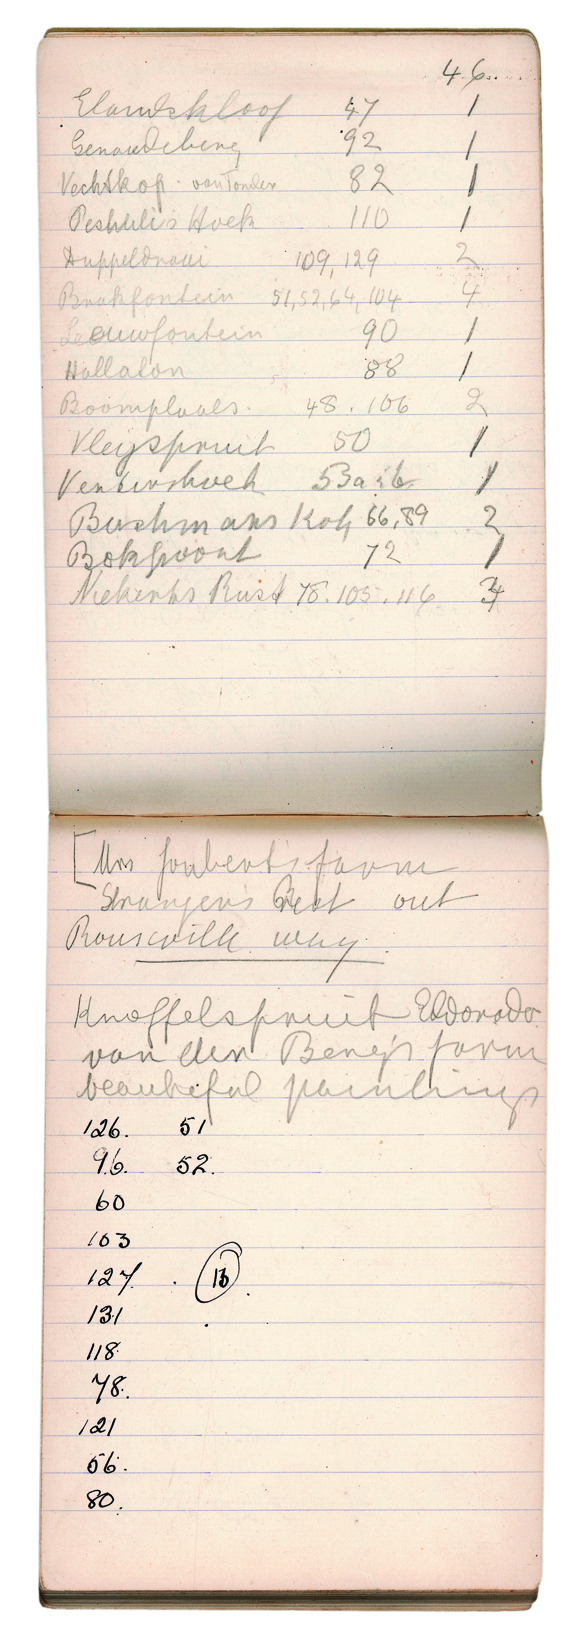 46.
Elandskloof 47 1
Genaudeberg 92 1
Vechtkop. van Tonder 82 1
Peshuli's Hoek 110 1
109, 129 2
Brakfontein 51, 52, 64, 104 4
Leeuwfontein 90 1
88 1
Boomplaats. 48. 106 2
Vleyspruit 50 1
Ventershoek 1
Bushmans Kop 66, 89 2
Bokpoort 72 1
Niekerks Rust 78. 105. 116
[Mrs Jouberts farm
Strangers Rest out
Rouxville way.
Knoffelspruit Eldorado
van der Berg's farm
beautiful paintings
126. 51
96. 52.
60
103
127. 13
131
118
78.
121
56.
80.